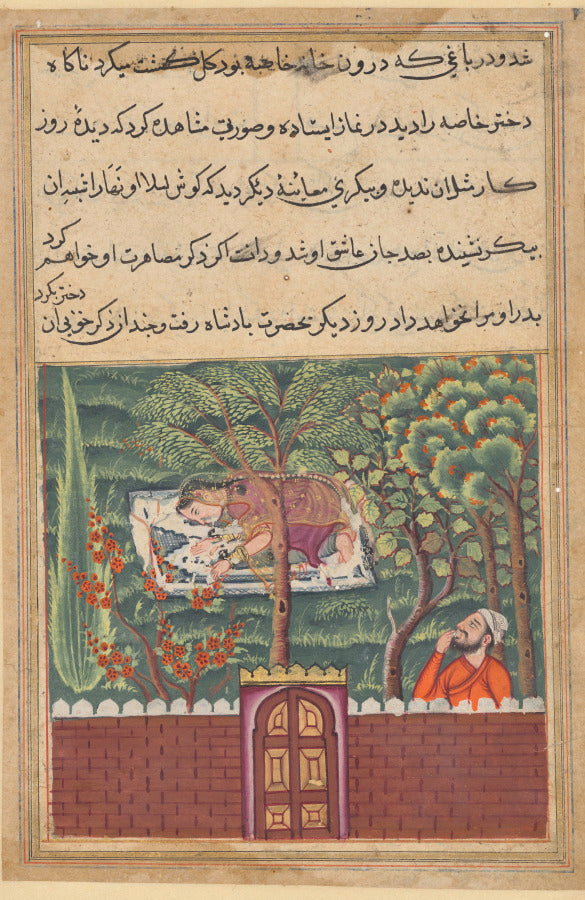 شد و در باغی که درون خانه خاصه بود کل کشت میکرد ناکاه
دختر خاصه را دید در نماز ایستاده و صورتی مشاهده کرد که دیدهٔ روز
کار مثل ان ندیده و پیکری معاینهٔ دیکر دید که کوش لیلا او نهارا شبه ان
پیکر نشیننده بصد جان عاشق او شد و دانست اکر ذکر مصاهرت او خواهم کرد
پدر او مرا نخواهد داد روز دیکر بحضرت بادشاه رفت و چند از ذکر خوبی ان دختر بکرد